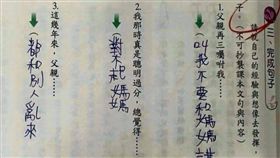 三、完成句子
請用自己的經驗與想像去發揮,
不可抄襲課本文句與內容)
1.父親再三囑咐我……
叫我不要和媽媽講
2.我那時真是聰明過分,總覺得……
對不起媽媽
3.這幾年來,父親……
都和別人亂來